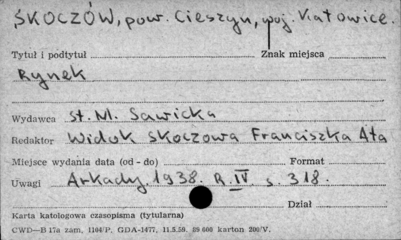 SKOCZÓW, pow. Cieszyn, woj. Katowice.
Tytuł i podtytuł Znak miejsca
Rynek
Wydawca St. M. Sawicka
Redaktor Widok Skoczowa Franciszka Ata
Miejsce wydania data (od - do) Format
Uwagi Arkady. 1938. R. IV. s. 318.
Dział
Karta katologowa czasopisma (tytularna)
CWD—B 17a zam. 1104/P. GDA-1477, 11.5.59. 89 600 karton 200/V.